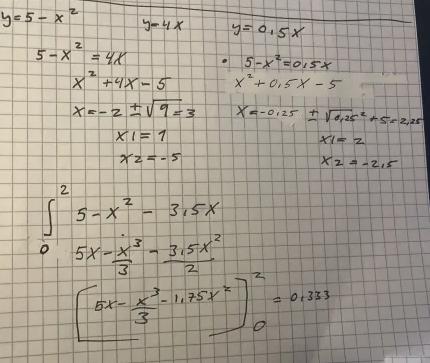 y=5-x² y=4x y=0,5x
5-x²=4x
x²+4x-5
x=-2±√9=3
x1=1
x2=-5
• 5-x²=0,5x
x²+0,5x-5
x=-0,25 ±√0,25²+5=2,25
x1=2
x2=-2,5
∫₀² 5-x²-3,5x
5x-x³/3-3,5x²/2
[5x-x³/3-1,75x²]₀² =0,333